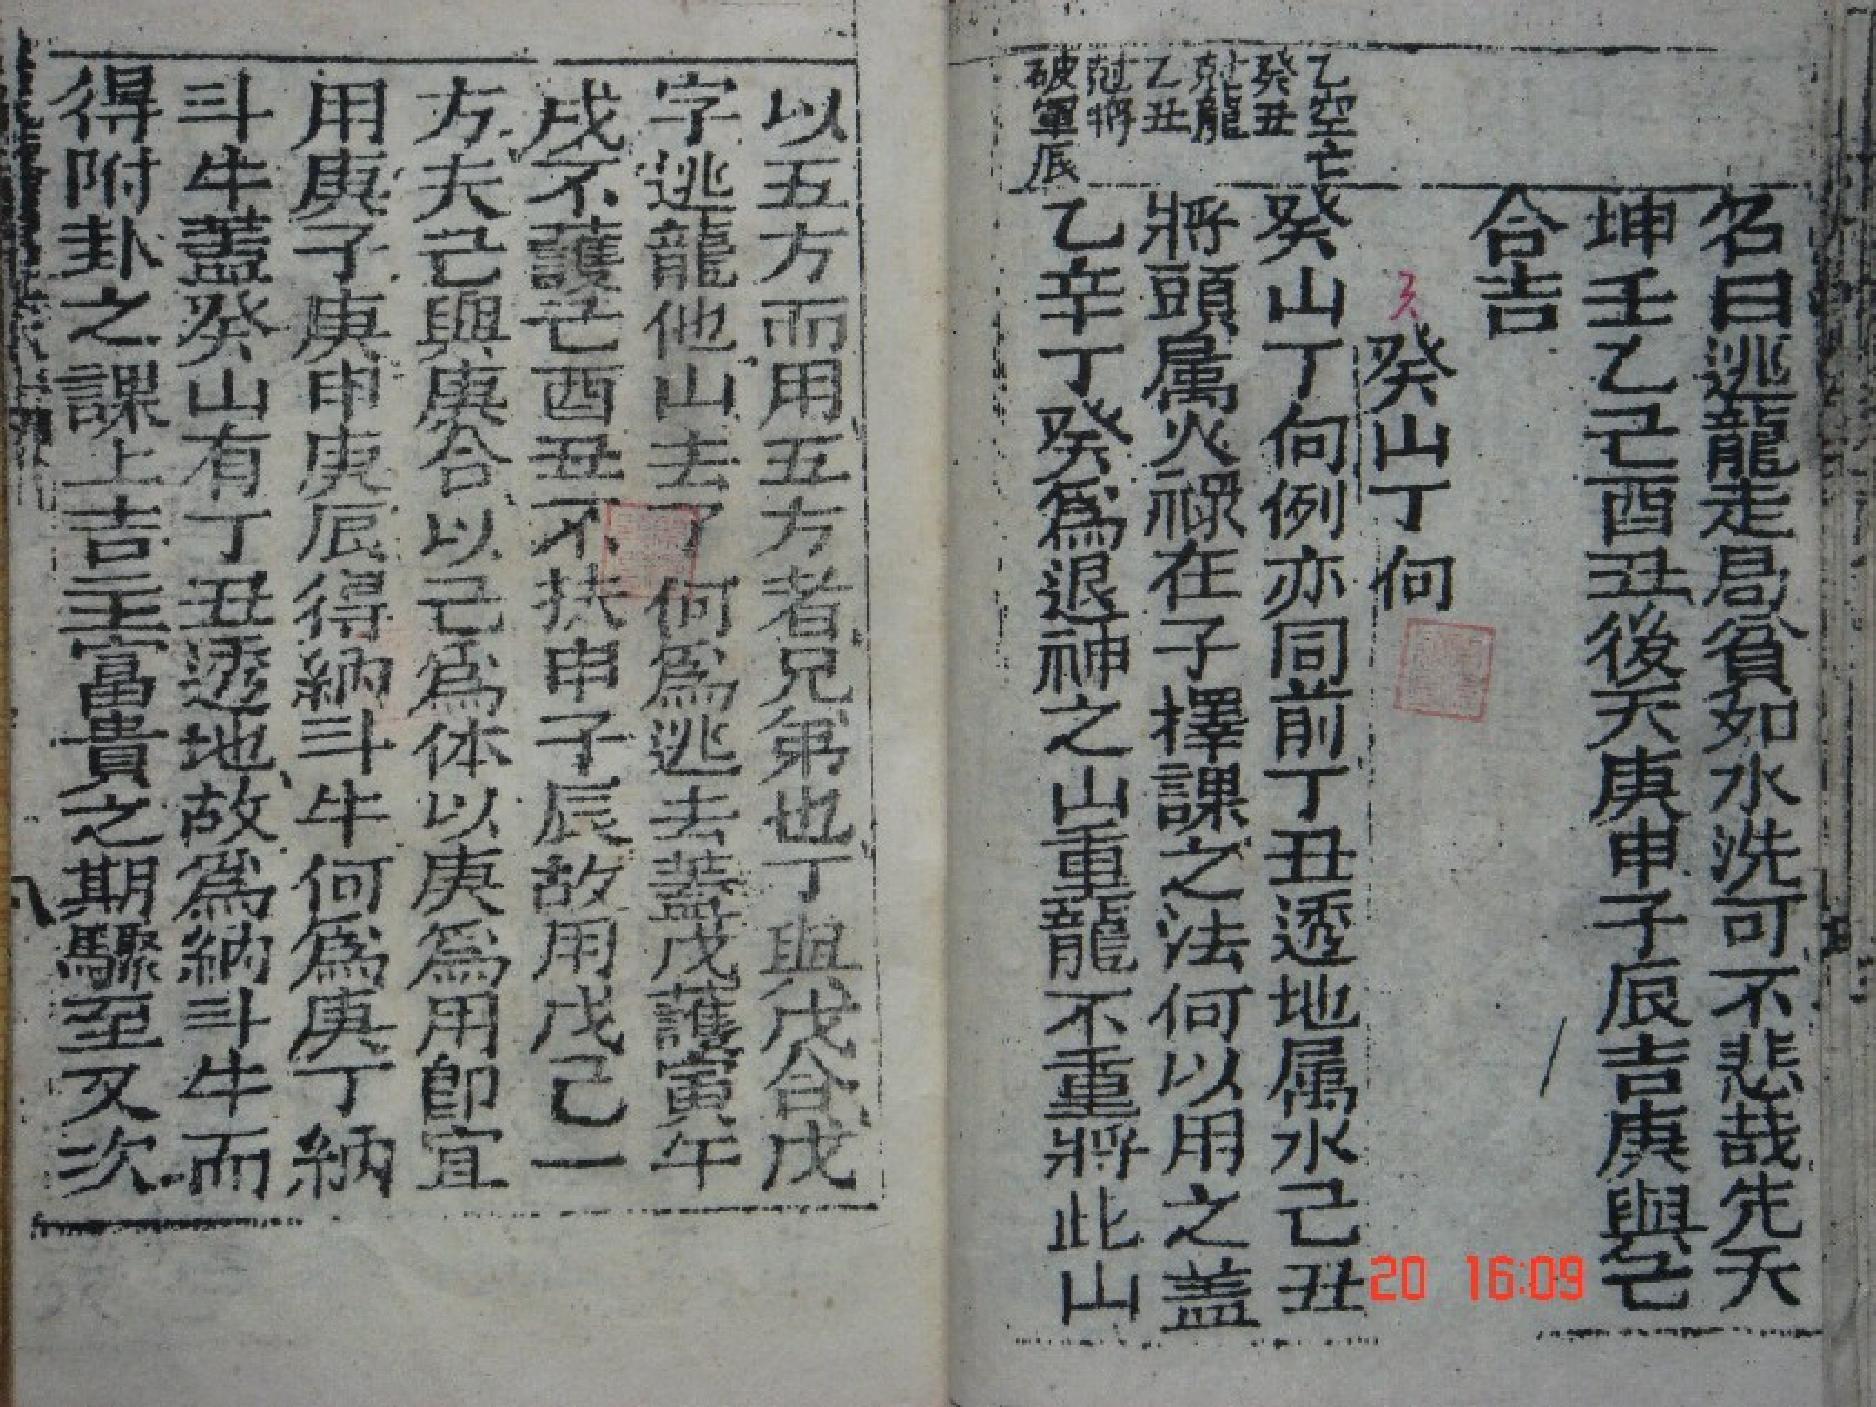 名曰逃龍走局貧如水洗可不悲哉先天
坤壬乙己酉丑後天庚申子辰吉庚與己
合吉
癸山丁向
乙空亡
癸丑
尅龍
乙丑
尅將
破軍辰
癸山丁向例亦同前丁丑透地属水己丑
將頭属火祿在子擇課之法何以用之盖
乙辛丁癸爲退神之山重龍不重將此山
以五方而用五方者兄弟也丁與戊合戊
字逃龍他山去了何爲逃去蓋戊護寅午
戌不護己酉丑不扶申子辰故用戊己一
方夫己與庚合以己爲体以庚爲用卽宜
用庚子庚申庚辰得納斗牛何爲庚丁納
斗牛蓋癸山有丁丑透地故爲納斗牛而
得附卦之課上吉主富貴之期驟至又次
八
20 16:09